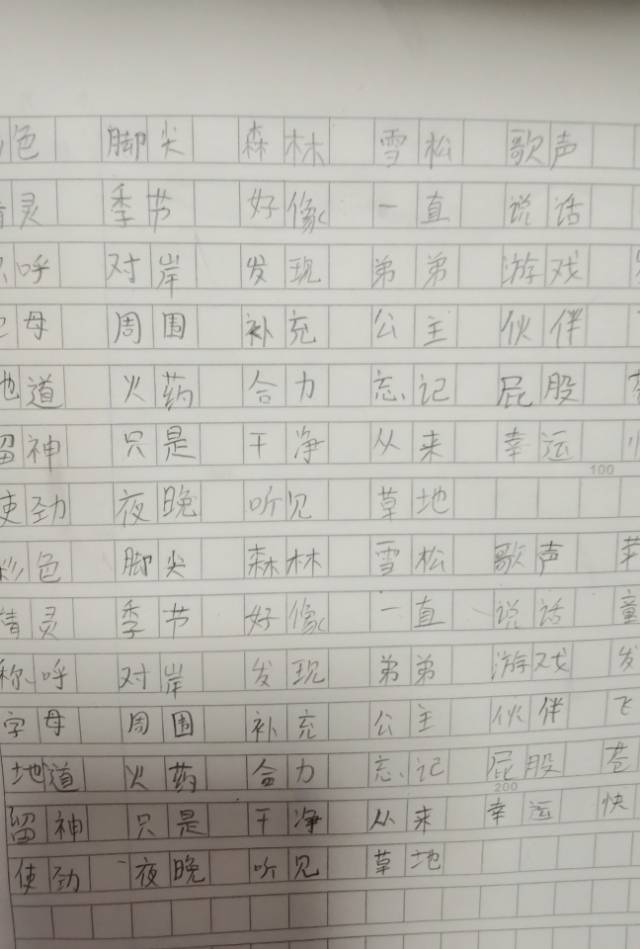 色 脚尖 森林 雪松 歌声
灵 季节 好像 一直 说话
呼 对岸 发现 弟弟 游戏
母 周围 补充 公主 伙伴
地道 火药 合力 忘记 屁股
留神 只是 干净 从来 幸运
100
使劲 夜晚 听见 草地
彩色 脚尖 森林 雪松 歌声
精灵 季节 好像 一直 说话 童
称呼 对岸 发现 弟弟 游戏 发
字母 周围 补充 公主 伙伴 飞
地道 火药 合力 忘记 屁股 苍
200
留神 只是 干净 从来 幸运 快
使劲 夜晚 听见 草地